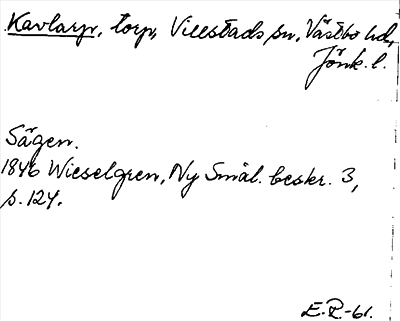 Kavlarp, torp, Villstads sn, Västbo hd,
Jönk. l.
Sägen.
1846 Wieselgren, Ny Smål. beskr. 3,
s. 124.
E.R.-61.